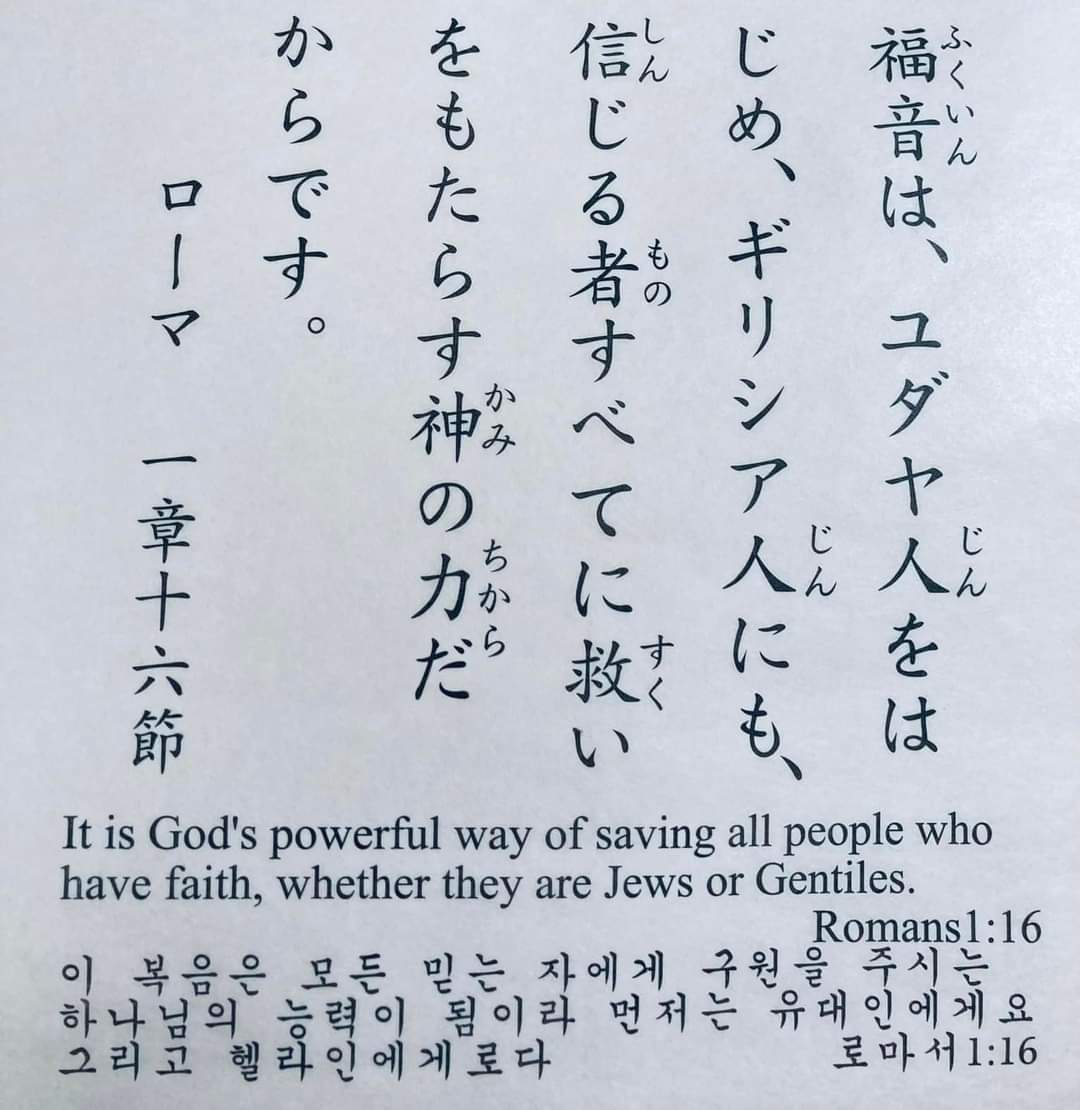 福音は、ユダヤ人をは
じめ、ギリシア人にも、
信じる者すべてに救い
をもたらす神の力だ
からです。
ローマ 一章十六節
ふくいん
じん
じん
しん
もの
すく
かみ
ちから
It is God's powerful way of saving all people who
have faith, whether they are Jews or Gentiles.
Romans1:16
이 복음은 모든 믿는 자에게 구원을 주시는
하나님의 능력이 됨이라 먼저는 유대인에게요
그리고 헬라인에게로다 로마서1:16